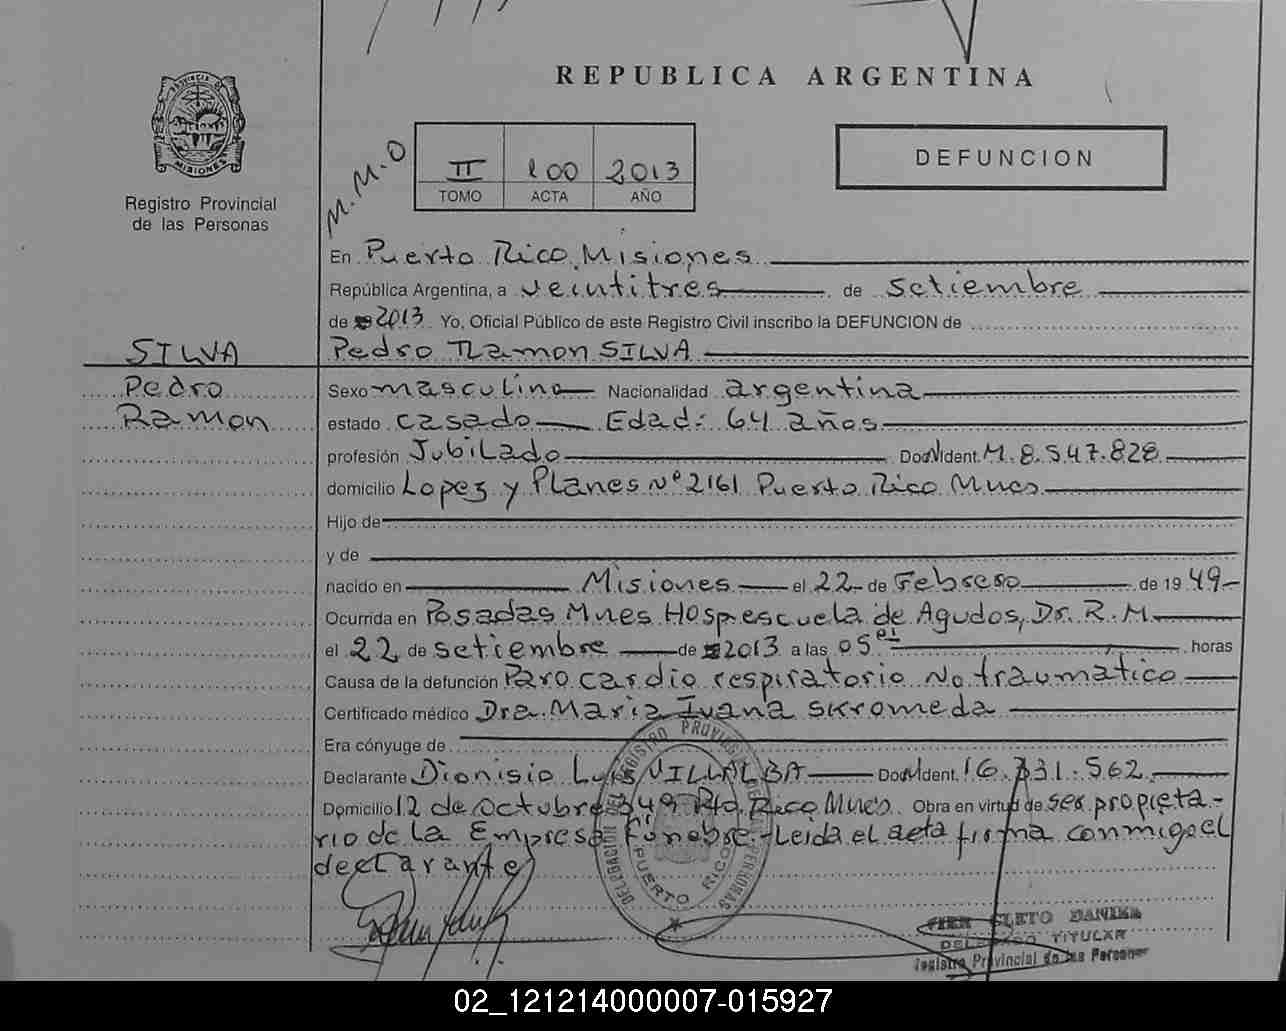 REPUBLICA ARGENTINA
PROVINCIA D
MISIONES
Registro Provincial
de las Personas
M.M.O
II 100 2013
TOMO ACTA AÑO
DEFUNCION
En Puerto Rico, Misiones
República Argentina, a veintitres de setiembre
de 2013. Yo, Oficial Público de este Registro Civil inscribo la DEFUNCION de
SILVA
Pedro Ramon SILVA
Pedro
Ramon
Sexo masculino Nacionalidad argentina
estado casado Edad: 64 años
profesión Jubilado Doc. Ident. M. 8.547.828
domicilio Lopez y Planes Nº 2161 Puerto Rico Mnes
Hijo de
y de
nacido en Misiones el 22 de Febrero de 1949
Ocurrida en Posadas Mnes Hosp. escuela de Agudos, Dr. R. M.
el 22 de setiembre de 2013 a las 05 horas
Causa de la defunción Paro cardio respiratorio No traumático
Certificado médico Dra. Maria Ivana Skromeda
Era cónyuge de
Declarante Dionisio Luis VILLALBA Doc. Ident. 16.331.562
Domicilio 12 de Octubre 349 Pto. Rico Mnes. Obra en virtud de ser propieta-
rio de la Empresa Fúnebre.- Leida el acta firma conmigo el
declarante
DELEGACION DEL REGISTRO PROVINCIAL DE LAS PERSONAS
PUERTO RICO
CLETO DANIEL
DELEGADO TITULAR
Registro Provincial de las Personas
02_121214000007-015927